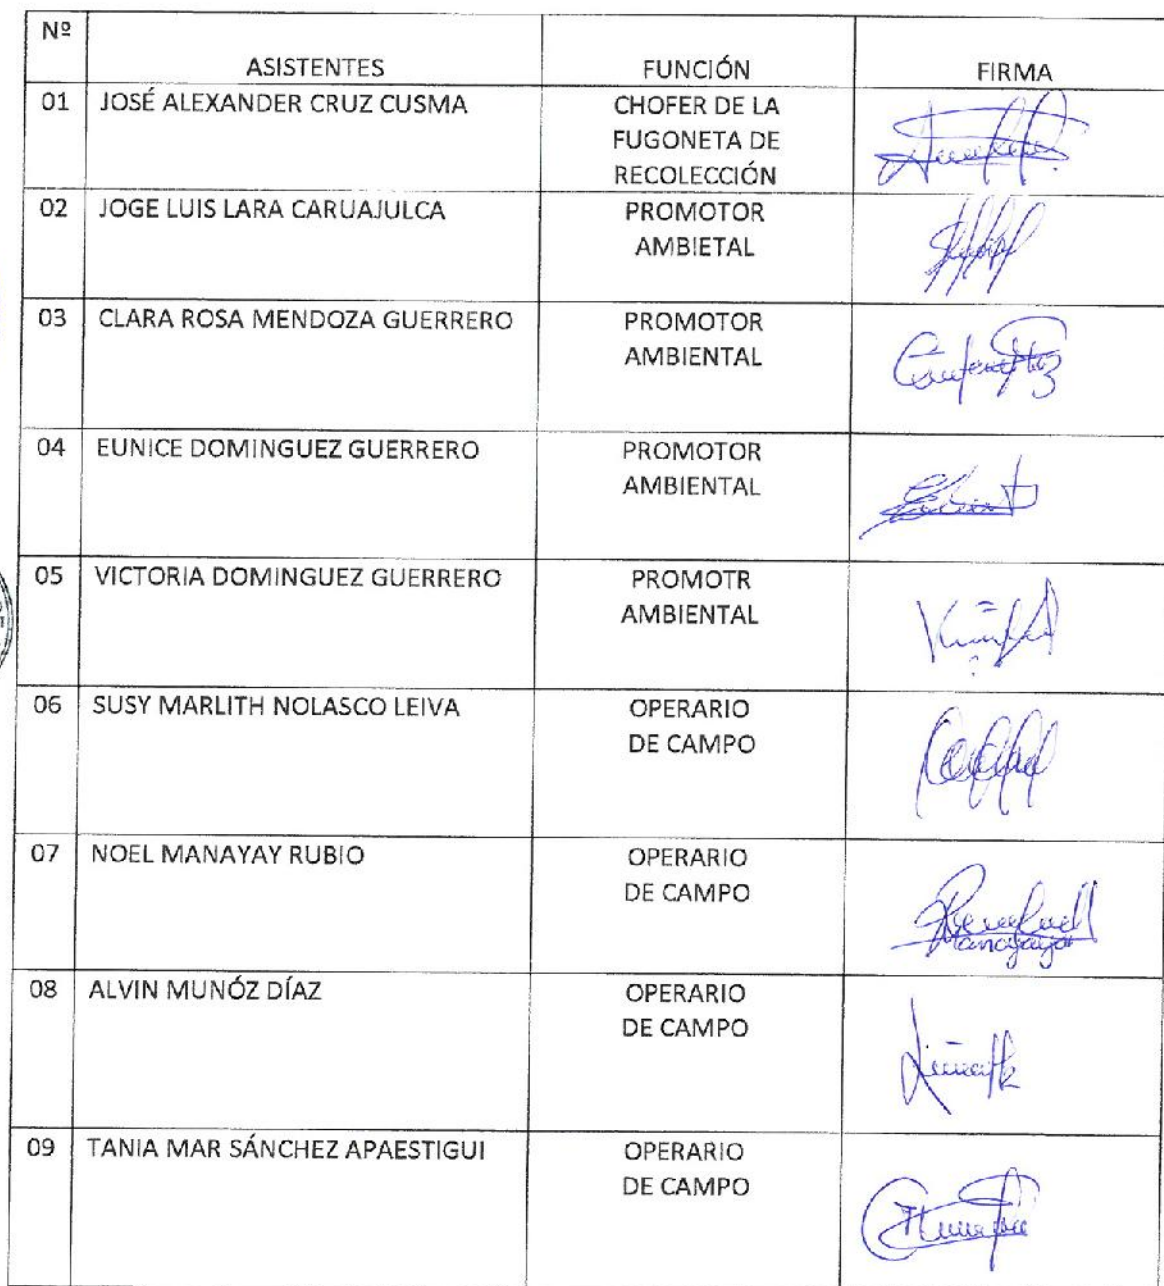 Nº
ASISTENTES FUNCIÓN FIRMA
01 JOSÉ ALEXANDER CRUZ CUSMA CHOFER DE LA
FUGONETA DE
RECOLECCIÓN
02 JOGE LUIS LARA CARUAJULCA PROMOTOR
AMBIETAL
03 CLARA ROSA MENDOZA GUERRERO PROMOTOR
AMBIENTAL
04 EUNICE DOMINGUEZ GUERRERO PROMOTOR
AMBIENTAL
05 VICTORIA DOMINGUEZ GUERRERO PROMOTR
AMBIENTAL
06 SUSY MARLITH NOLASCO LEIVA OPERARIO
DE CAMPO
07 NOEL MANAYAY RUBIO OPERARIO
DE CAMPO
08 ALVIN MUNÓZ DÍAZ OPERARIO
DE CAMPO
09 TANIA MAR SÁNCHEZ APAESTIGUI OPERARIO
DE CAMPO